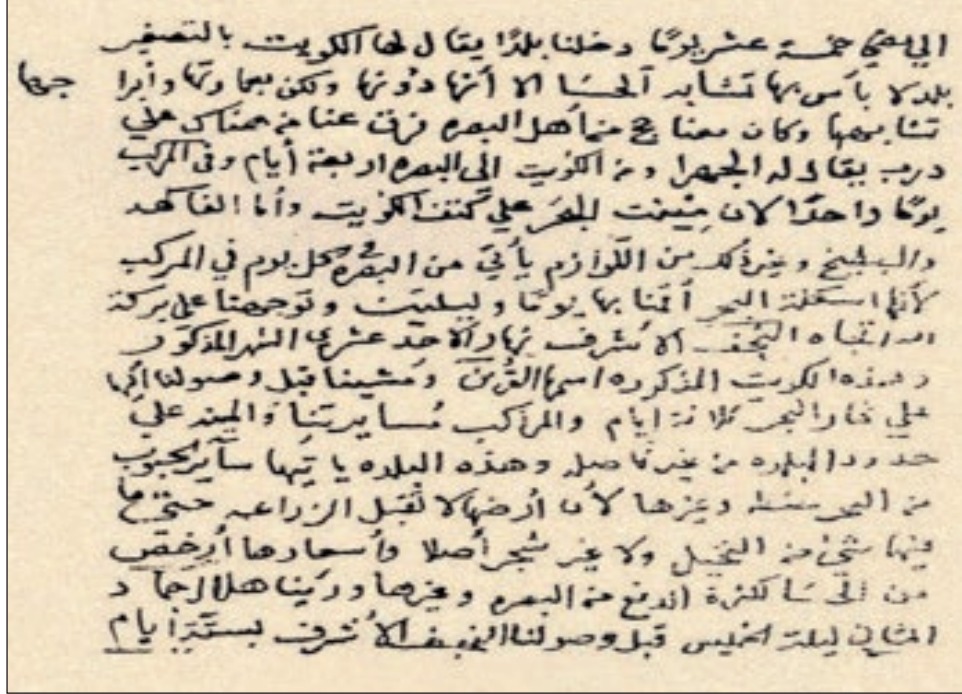 الي مضي خمسة عشر يومًا دخلنا بلدًا يقال لها الكويت بالتصغير
بلد لا بأس بها تشابه الحسا الا أنها دونها ولكن بعمارتها وأبرا جها
تشابهها وكان معنا حج من أهل البصره فرق عنا من هناك علي
درب يقال له الجهرا ومن الكويت الى البصره اربعة أيام وفى المركب
يومًا واحدًا لان مينت البحر علي كتف الكويت وأما الفاكهه
والبطيخ وغير ذلك من اللّوازم يأتي من البصره كل يوم في المركب
لأنها اسكلة البحر أقمنا بها يومًا وليليتين وتوجهنا على بركة
الله اتجاه النجف الاشرف نهار الاحد عشري الشهر المذكور
وهذه الكويت المذكوره اسمها القُرين ومشينا قبل وصولنا اليها
علي كنار البحر ثلاثة ايام والمراكب مسايرتنا والمينه علي
حدود البلده من غير فاصله وهذه البلده يا تيها سآير الحبوب
من البحر حنطه وغيرها لأن أرضها لا تقبل الزراعه حتى ما
فيها شيء من النخيل ولا غير شجر أصلا وأسعارها أرخص
من الحسا لكثرة الدفع من البصره وغيرها ورينا هلال جماد
الثاني ليلة الخميس قبل وصولنا النجف الأشرف بستة أيام